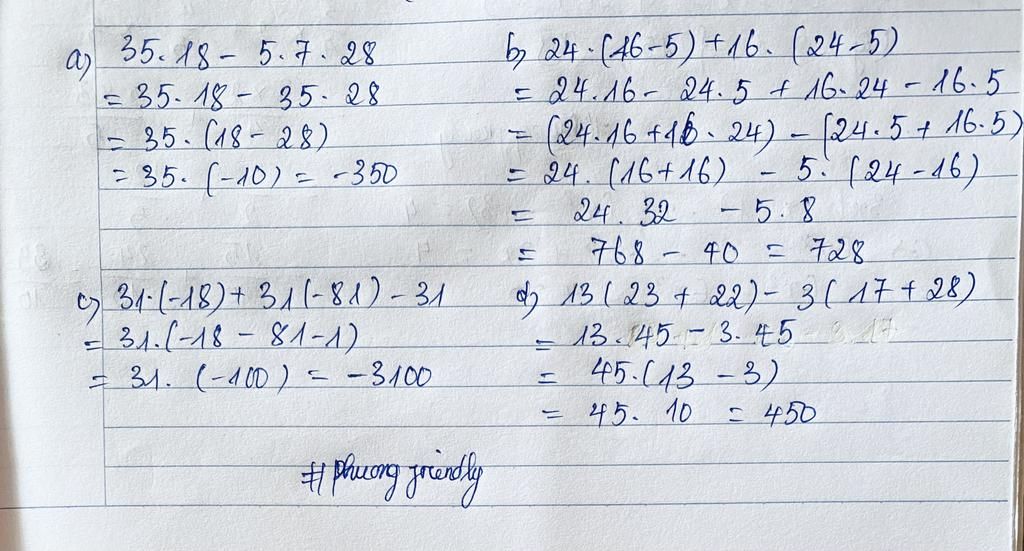 a) 35.18 - 5.7.28
= 35.18 - 35.28
= 35.(18 - 28)
= 35.(-10) = -350
b) 24.(16-5)+16.(24-5)
= 24.16 - 24.5 + 16.24 - 16.5
= (24.16 + 16.24) - (24.5 + 16.5)
= 24.(16+16) - 5.(24-16)
= 24.32 - 5.8
= 768 - 40 = 728
c) 31.(-18) + 31(-81) - 31
= 31.(-18 - 81 - 1)
= 31.(-100) = -3100
d) 13(23 + 22) - 3(17 + 28)
= 13.45 - 3.45
= 45.(13 - 3)
= 45.10 = 450
#phuong friendly